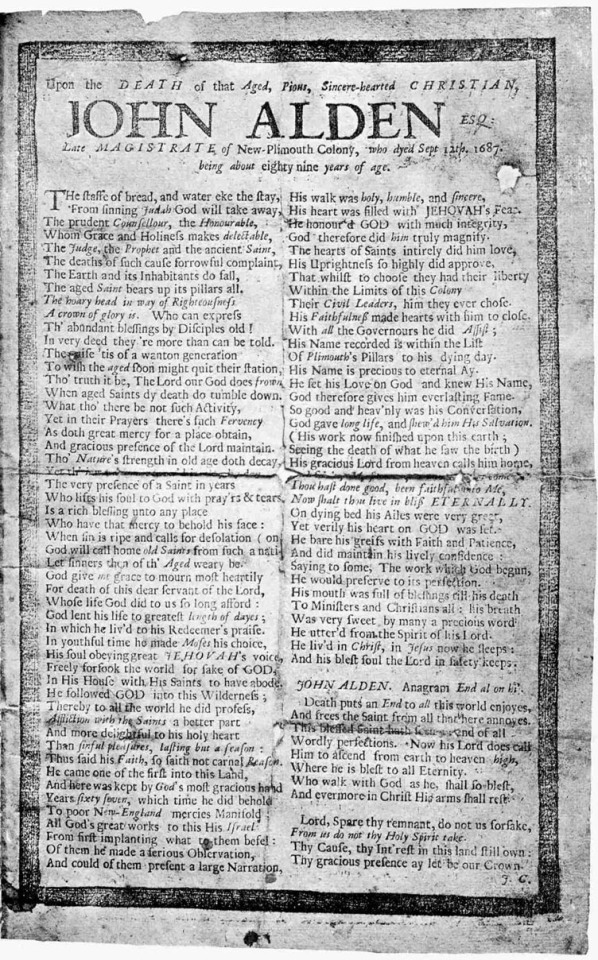 Upon the DEATH of that Aged, Pious, Sincere-hearted CHRISTIAN,
JOHN ALDEN ESQ:
Late MAGISTRATE of New-Plimouth Colony, who dyed Sept 12th. 1687.
being about eighty nine years of age.
THe staffe of bread, and water eke the stay,
From sinning Judah God will take away,
The prudent Counsellour, the Honourable,
Whom Grace and Holiness makes delectable,
The Judge, the Prophet and the ancient Saint,
The deaths of such cause sorrowful complaint,
The Earth and its Inhabitants do fall,
The aged Saint bears up its pillars all.
The hoary head in way of Righteousness
A crown of glory is. Who can express
Th' abundant blessings by Disciples old!
In very deed they're more than can be told.
The guise 'tis of a wanton generation
To wish the aged soon might quit their station,
Tho' truth it be, The Lord our God does frown
When aged Saints dy death do tumble down.
What tho' there be not such Activity,
Yet in their Prayers there's such Fervency
As doth great mercy for a place obtain,
And gracious presence of the Lord maintain.
Tho' Nature's strength in old age doth decay,
The very presence of a Saint in years
Who lifts his soul to God with pray'rs & tears,
Is a rich blessing unto any place
Who have that mercy to behold his face:
When sin is ripe and calls for desolation (on
God will call home old Saints from such a nati-
Let sinners then of th' Aged weary be.
God give me grace to mourn most heartily
For death of this dear servant of the Lord,
Whose life God did to us so long afford:
God lent his life to greatest length of dayes;
In which he liv'd to his Redeemer's praise.
In youthful time he made Moses his choice,
His soul obeying great JEHOVAH's voice,
Freely forsook the world for sake of GOD,
In His House with His Saints to have abode.
He followed GOD into this Wilderness;
Thereby to all the world he did profess,
Affliction with the Saints a better part
And more delightful to his holy heart
Than sinful pleasures, lasting but a season:
Thus said his Faith, so saith not carnal Reason.
He came one of the first into this Land,
And here was kept by God's most gracious hand
Years sixty seven, which time he did behold
To poor New-England mercies Manifold:
All God's great works to this His Israel
From first implanting what to them befel:
Of them he made a serious Observation,
And could of them present a large Narration,
His walk was holy, humble, and sincere,
His heart was filled with JEHOVAH's Fear.
He honour'd GOD with much integrity.
God therefore did him truly magnify.
The hearts of Saints intirely did him love,
His Uprightness so highly did approve,
That whilst to choose they had their liberty
Within the Limits of this Colony
Their Civil Leaders, him they ever chose.
His Faithfulness made hearts with him to close.
With all the Governours he did Assist;
His Name recorded is within the List
Of Plimouth's Pillars to his dying day.
His Name is precious to eternal Ay.
He set his Love on God and knew His Name,
God therefore gives him everlasting Fame.
So good and heav'nly was his Conversation,
God gave long life, and shew'd him His Salvation.
(His work now finished upon this earth;
Seeing the death of what he saw the birth)
His gracious Lord from heaven calls him home,
Thou hast done good, been faithful unto Me,
Now shalt thou live in bliss ETERNALLY.
On dying bed his Ailes were very great,
Yet verily his heart on GOD was set.
He bare his griefs with Faith and Patience,
And did maintain his lively confidence:
Saying to some, The work which God begun,
He would preserve to its perfection.
His mouth was full of blessings till his death
To Ministers and Christians all: his breath
Was very sweet by many a precious word
He utter'd from the Spirit of his Lord.
He liv'd in Christ, in Jesus now he sleeps:
And his blest soul the Lord in safety keeps.
JOHN ALDEN. Anagram End al on hi'.
Death puts an End to all this world enjoyes,
And frees the Saint from all that here annoyes.
This blessed Saint hath end of all
Wordly perfections. Now his Lord does call
Him to ascend from earth to heaven high,
Where he is blest to all Eternity.
Who walk with God as he, shall so blest,
And evermore in Christ His arms shall rest.
Lord, Spare thy remnant, do not us forsake,
From us do not thy Holy Spirit take.
Thy Cause, thy Int'rest in this land still own:
Thy gracious presence ay let be our Crown.
J. C.